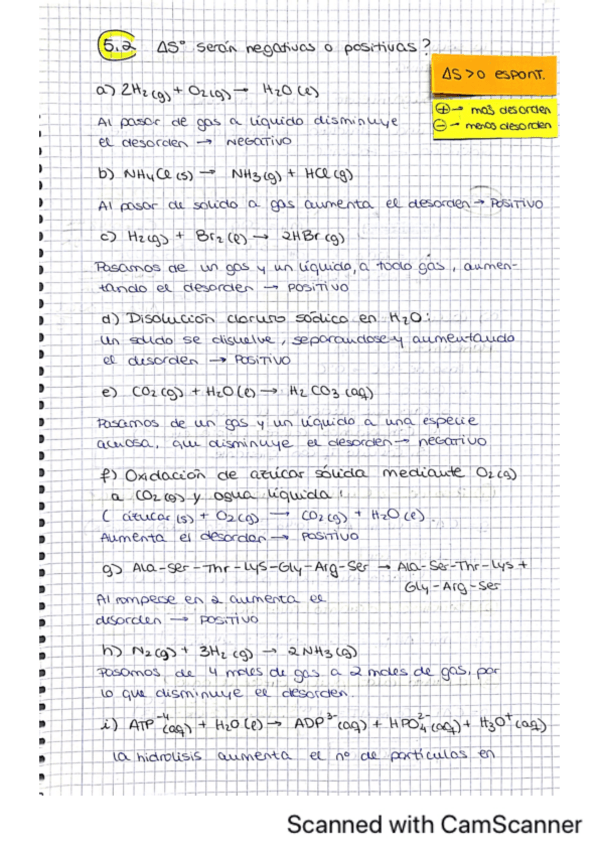 5.2 ΔS° serán negativas o positivas?
ΔS>0 ESPONT.
⊕→ más desorden
⊖→ menos desorden
a) 2H₂(g) + O₂(g) → H₂O(l)
Al pasar de gas a líquido disminuye
el desorden → NEGATIVO
b) NH₄Cl(s) → NH₃(g) + HCl(g)
Al pasar de solido a gas aumenta el desorden → POSITIVO
c) H₂(g) + Br₂(l) → 2HBr(g)
Pasamos de un gas y un líquido, a todo gas, aumen-
tando el desorden → POSITIVO
d) Disolución cloruro sódico en H₂O:
un solido se disuelve, separandose y aumentando
el desorden → POSITIVO
e) CO₂(g) + H₂O(l) → H₂CO₃(aq)
Pasamos de un gas y un líquido a una especie
acuosa, que disminuye el desorden → negativo
f) Oxidación de azúcar sólida mediante O₂(g)
a CO₂(g) y agua líquida:
( azucar(s) + O₂(g) → CO₂(g) + H₂O(l).
Aumenta el desorden → POSITIVO
g) Ala-Ser-Thr-Lys-Gly-Arg-Ser → Ala-Ser-Thr-Lys +
Gly-Arg-Ser
Al romperse en 2 aumenta el
desorden → POSITIVO
h) N₂(g) + 3H₂(g) → 2NH₃(g)
Pasamos de 4 moles de gas a 2 moles de gas, por
lo que disminuye el desorden.
i) ATP⁻⁴(aq) + H₂O(l) → ADP³⁻(aq) + HPO₄²⁻(aq) + H₃O⁺(aq)
la hidrolisis aumenta el nº de partículas en
Scanned with CamScanner